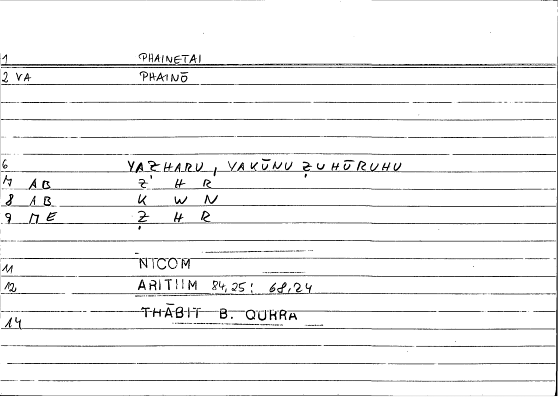 1 PHAINETAI
2 VA PHAINŌ
6 YAẒHARU, YAKŪNU ẒUHŪRUHU
7 AB Ẓ H R
8 AB K W N
9 ME Ẓ H R
11 NICOM
12 ARITIIM 84,25; 68,24
14 THĀBIT B. QURRA